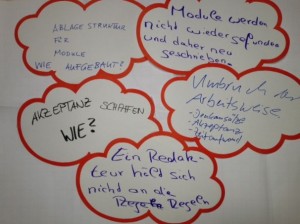 ABLAGE STRUKTUR
FÜR
MODULE
WIE AUFGEBAUT?
Module werden
nicht wiedergefunden
und daher neu
geschrieben.
AKZEPTANZ SCHAFFEN
WIE?
Umbruch der
Arbeitsweise
- Denkansätze
- Akzeptanz
- Zeitaufwand
Ein Redak-
teur hält sich
nicht an die
Regeln